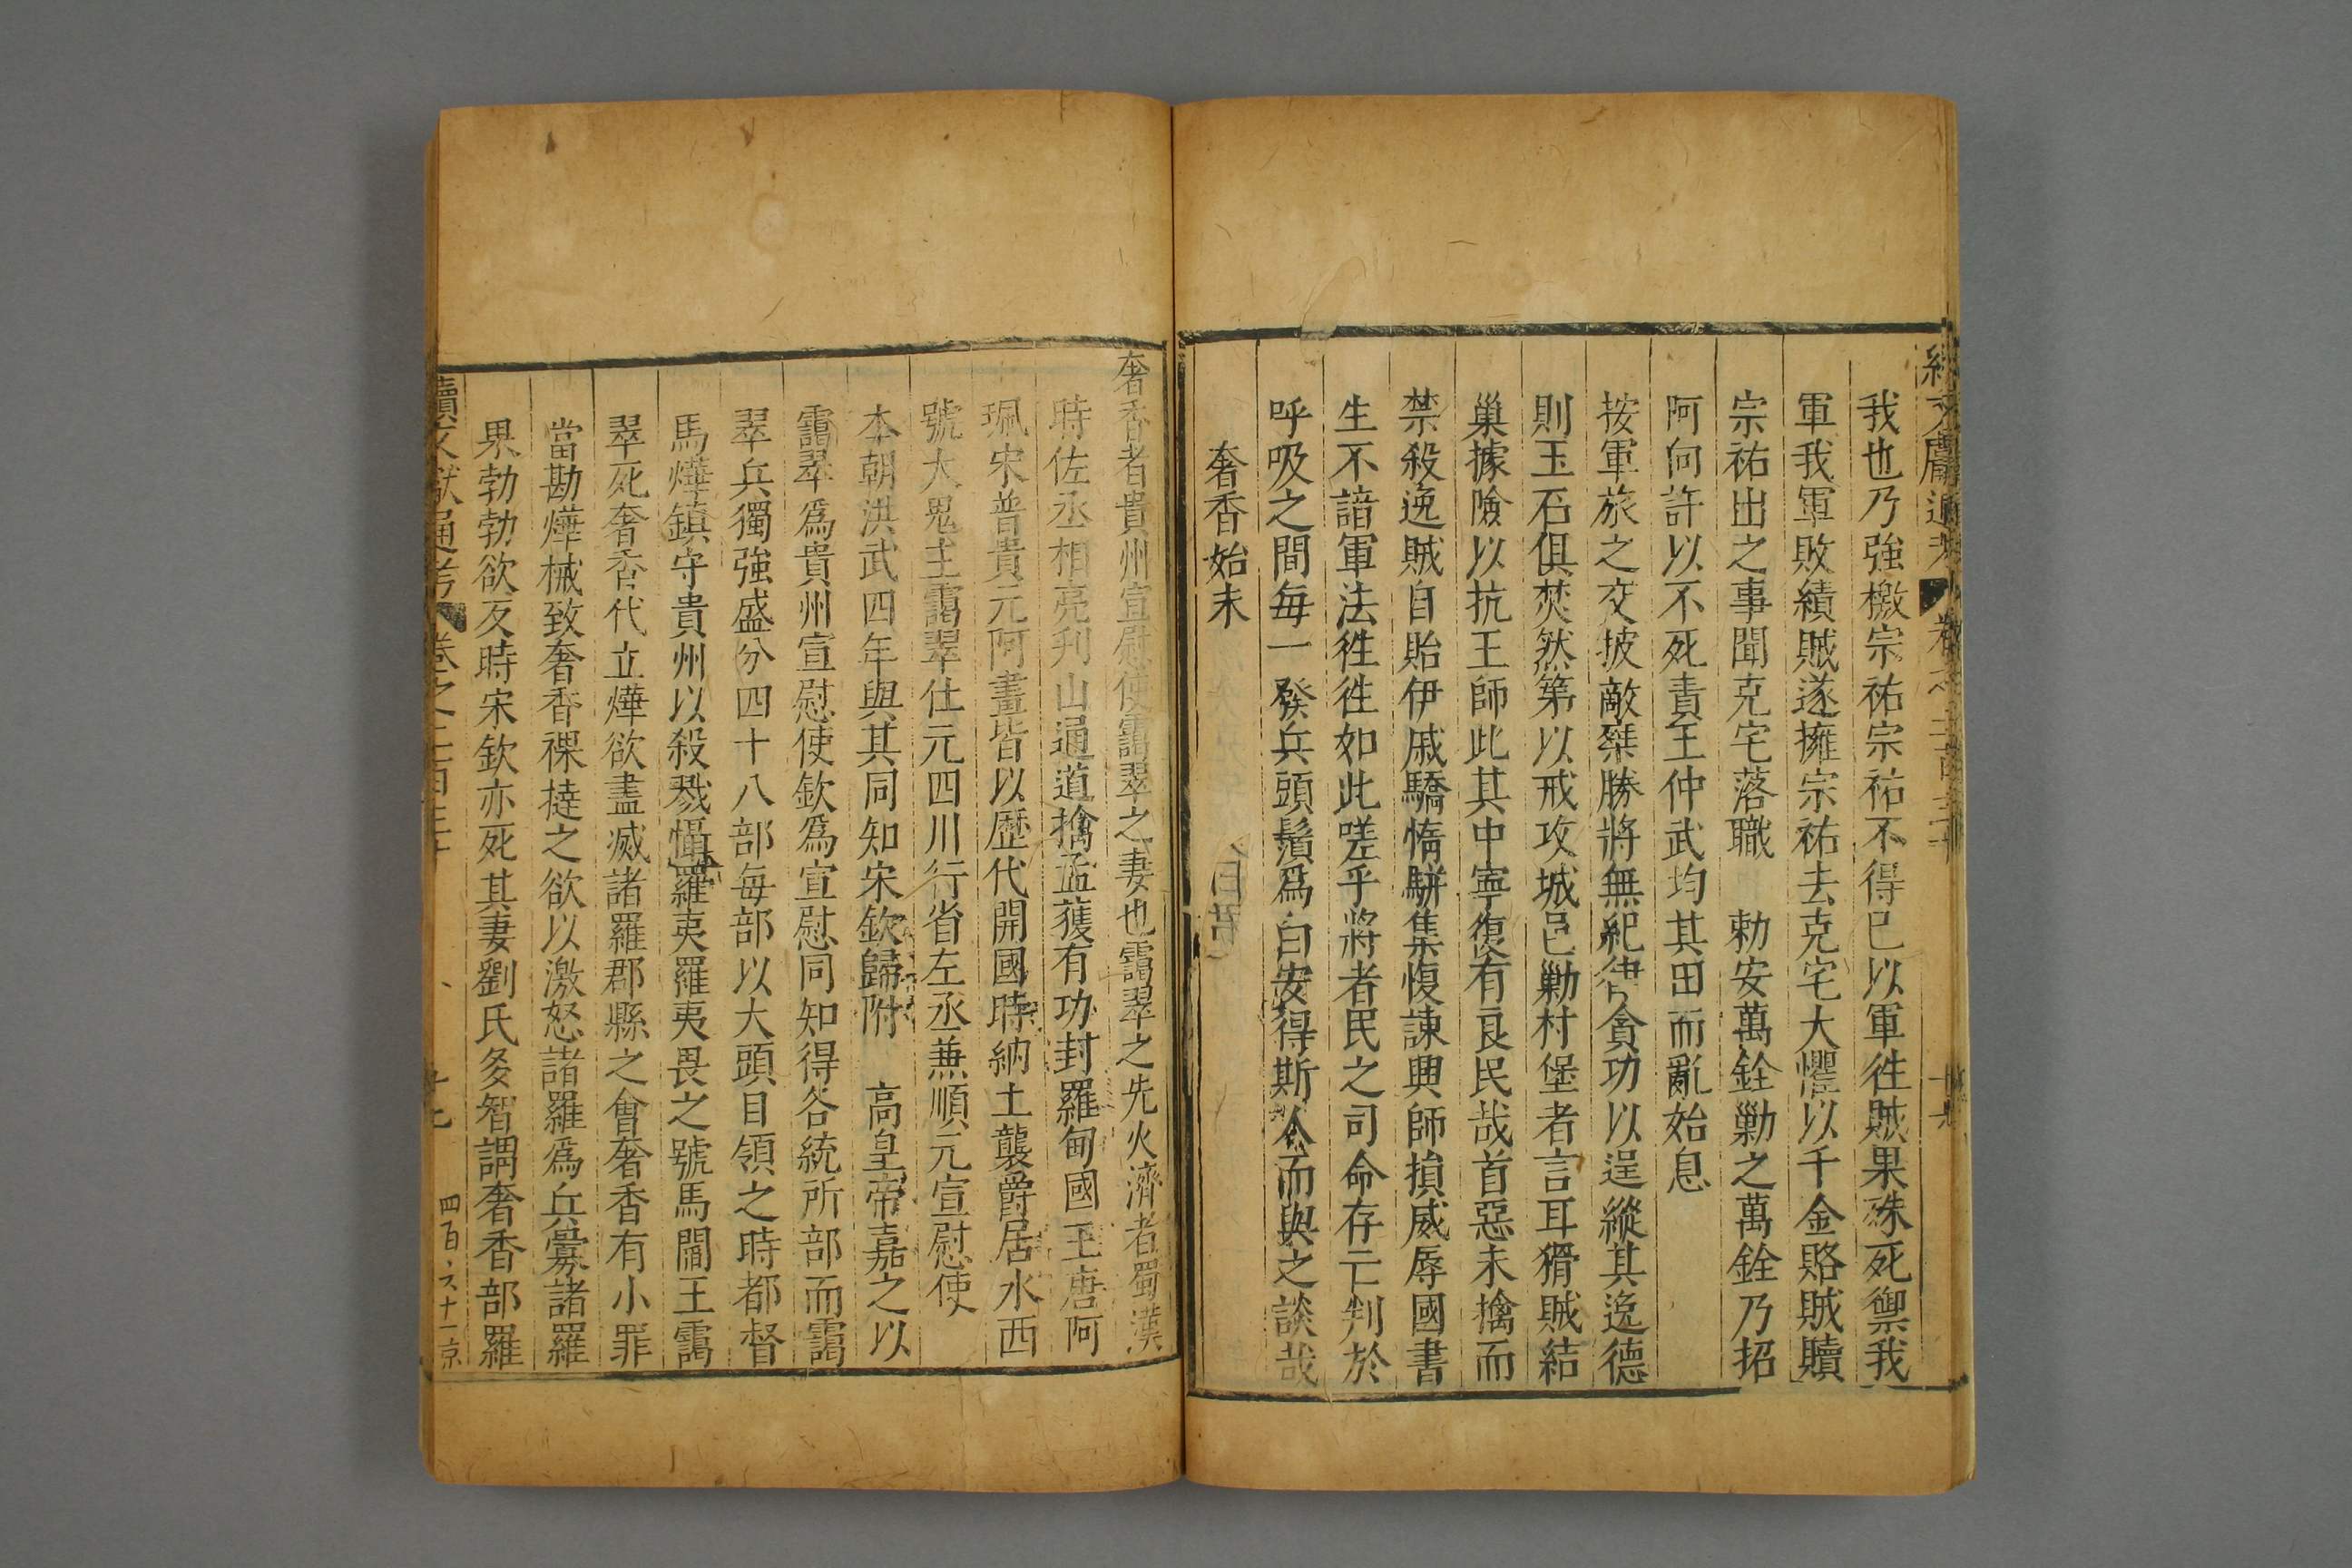 我也乃強檄宗祐宗祐不得已以軍徃賊果殊死禦我
軍我軍敗績賊遂擁宗祐去克宅大懼以千金賂賊贖
宗祐出之事聞克宅落職 勅安萬銓勦之萬銓乃招
阿向許以不死責王仲武均其田而亂始息
按軍旅之交披敵桀勝將無紀律貪功以逞縱其逸德
則玉石俱焚然第以戒攻城邑勦村堡者言耳猾賊結
巢據險以抗王師此其中寧復有良民哉首惡未擒而
禁殺逸賊自貽伊戚驕惰駢集愎諫興師損威辱國書
生不諳軍法徃徃如此嗟乎將者民之司命存亡判於
呼吸之間每一發兵頭鬚爲白安得斯人而與之談哉
奢香始末
奢香者貴州宣慰使靄翠之妻也靄翠之先火濟者蜀漢
時佐丞相亮刋山通道擒孟獲有功封羅甸國王唐阿
珮宋普貴元阿畫皆以歷代開國時納土襲爵居水西
號大鬼主靄翠仕元四川行省左丞兼順元宣慰使
本朝洪武四年與其同知宋欽歸附 高皇帝嘉之以
靄翠爲貴州宣慰使欽爲宣慰同知得各統所部而靄
翠兵獨強盛分四十八部每部以大頭目領之時都督
馬燁鎮守貴州以殺戮懾羅夷羅夷畏之號馬閻王靄
翠死奢香代立燁欲盡滅諸羅郡縣之會奢香有小罪
當勘燁械致奢香裸撻之欲以激怒諸羅爲兵釁諸羅
果勃勃欲反時宋欽亦死其妻劉氏多智謂奢香部羅
續文獻通考 卷之二百四十 十七 四百六十一 京